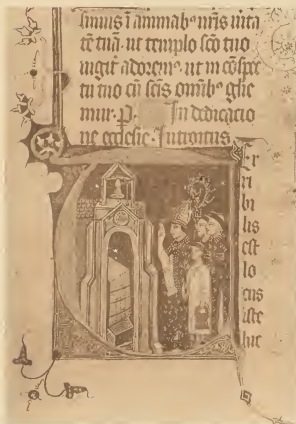 simus i animabꝰ nr̄is iuita
tē tuā. ut templo sc̄o tuo
iugit adoremꝰ. ut in cōspec
tu tuo cū sc̄is om̄ibꝰ glīe
mur. P. In dedicacio
ne ecclesie. Introitus
Er
ri
bi
lis
est
lo
cus
iste
hic